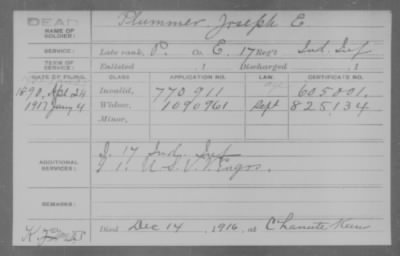 DEAD
NAME OF SOLDIER: Plummer, Joseph E.
SERVICE: Late rank, P. Co. E, 17 Reg't Ind. Inf
TERM OF SERVICE: Enlisted , 1 Discharged , 1
DATE OF FILING. CLASS. APPLICATION NO. LAW. CERTIFICATE NO.
1890, Apl. 24 Invalid, 770911 605001.
1917 Jany 4 Widow, 1090961 Sept 825134
Minor,
ADDITIONAL SERVICES: I. 17 Ind. Inf
I 1. U.S.V.V. Engrs.
REMARKS:
Died Dec 14, 1916, at Chanute Kans